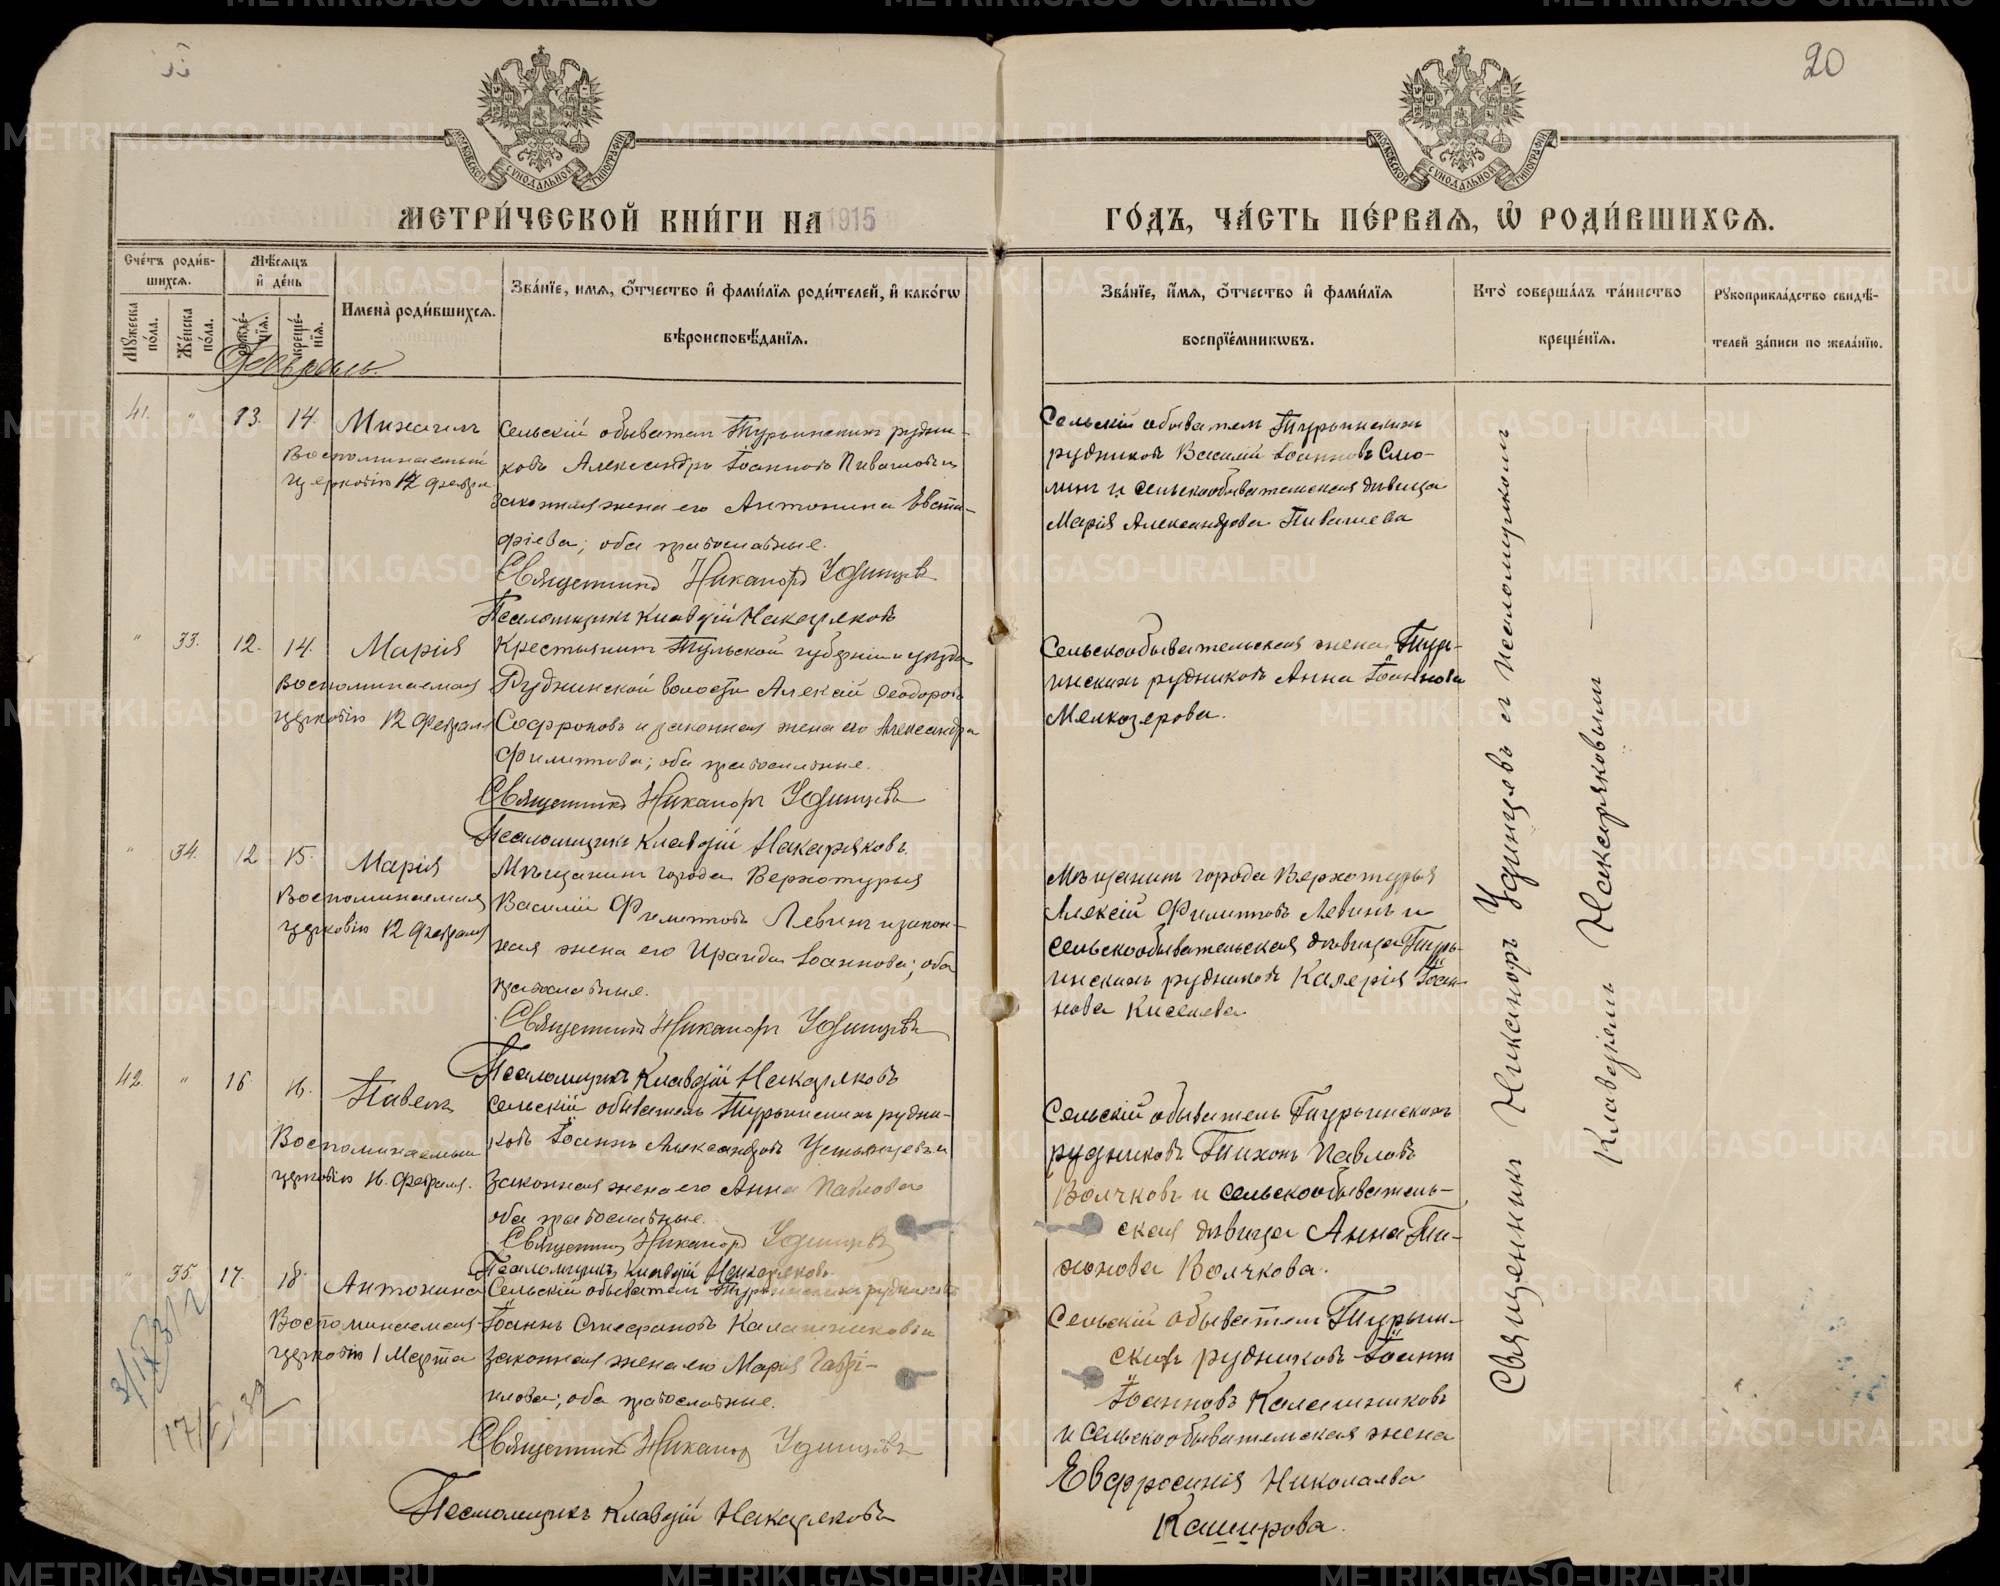 20
МОСКОВСКОЙ СѴНОДАЛЬНОЙ ТИПОГРАФІИ
МОСКОВСКОЙ СѴНОДАЛЬНОЙ ТИПОГРАФІИ
МЕТРИ́ЧЕСКОЙ КНИ́ГИ НА 1915
ГО́ДЪ, ЧА́СТЬ ПЕ́РВАѦ, Ѡ РОДИ́ВШИХСѦ.
Сче́тъ роди́в-
шихсѧ.
Мꙋжеска по́ла.
Же́нска по́ла.
Мѣ́сѧцъ
и҆ де́нь
рожде́нїѧ.
креще́нїѧ.
Имена̀ роди́вшихсѧ.
Зва́нїе, имѧ, ѻ҆́тчество и҆ фами́лїѧ роди́телей, и҆ како́гѡ
вѣроисповѣ́данїѧ.
Зва́нїе, и҆́мѧ, ѻ҆́тчество и҆ фами́лїѧ
воспрїе́мникѡвъ.
Кто̀ соверша́лъ та́инство
креще́нїѧ.
Рꙋкоприкла́дство свидѣ́-
телей за́писи по жела́нїю.
Февраль.
41. " 13. 14. Михаилъ
Воспоминаемый
церковію 12 февра
Сельскій обыватель Турьинскихъ рудни-
ковъ Александръ Іоанновъ Пивашевъ и
законная жена его Антонина Евста-
фіева; оба православные.
Священникъ Никаноръ Удинцевъ
Псаломщикъ Клавдій Накаряковъ
Сельскій обыватель Турьинскихъ
рудниковъ Василій Іоанновъ Смо-
лин и сельскообывательская дѣвица
Марія Александрова Пивашева
" 33. 12. 14. Марія
Воспоминаемая
церковію 12 Февраля
Крестьянинъ Тульской губерніи и уѣзда
Рудинской волости Алексій Ѳеодоровъ
Софроновъ и законная жена его Александра
Филиппова; оба православные.
Священникъ Никаноръ Удинцевъ
Псаломщикъ Клавдій Накаряковъ.
Сельскообывательская жена Турь-
инскихъ рудниковъ Анна Іоаннова
Мелкозерова.
" 34. 12 15. Марія
Воспоминаемая
церковію 12 февраля
Мѣщанинъ города Верхотурья
Василій Филипповъ Левинъ и закон-
ная жена его Ираида Іоаннова; оба
православные.
Священникъ Никаноръ Удинцевъ
Псаломщикъ Клавдій Накаряковъ
Мѣщанинъ города Верхотурья
Алексій Филипповъ Левинъ и
сельскообывательская дѣвица Турь-
инскихъ рудниковъ Калерія Іоан-
нова Киселева
42. " 16. 16. Павелъ
Воспоминаемый
церковію 16. февраля.
Сельскій обыватель Турьинскихъ рудни-
ковъ Іоаннъ Александровъ Устьянцевъ и
законная жена его Анна Павлова
оба православные.
Священникъ Никаноръ Удинцевъ
Псаломщикъ Клавдій Накаряковъ
Сельскій обыватель Турьинскихъ
рудниковъ Тихонъ Павловъ
Волчковъ и сельскообыватель-
ская дѣвица Анна Ти-
хонова Волчкова.
" 35. 17. 18. Антонина
Воспоминаемая
церковію 1 Марта
Сельскій обыватель Турьинскихъ рудниковъ
Іоаннъ Стефановъ Калашниковъ и
законная жена его Марія Гаврі-
илова; оба православные.
Священникъ Никаноръ Удинцевъ
Псаломщикъ Клавдій Накаряковъ
Сельскій обыватель Турьин-
скихъ рудниковъ Іоаннъ
Іоанновъ Калашниковъ
и сельскообывательская жена
Евфросинія Николаева
Каширова.
Священникъ Никаноръ Удинцевъ съ псаломщикомъ
Клавдіемъ Накаряковымъ
METRIKI.GASO-URAL.RU